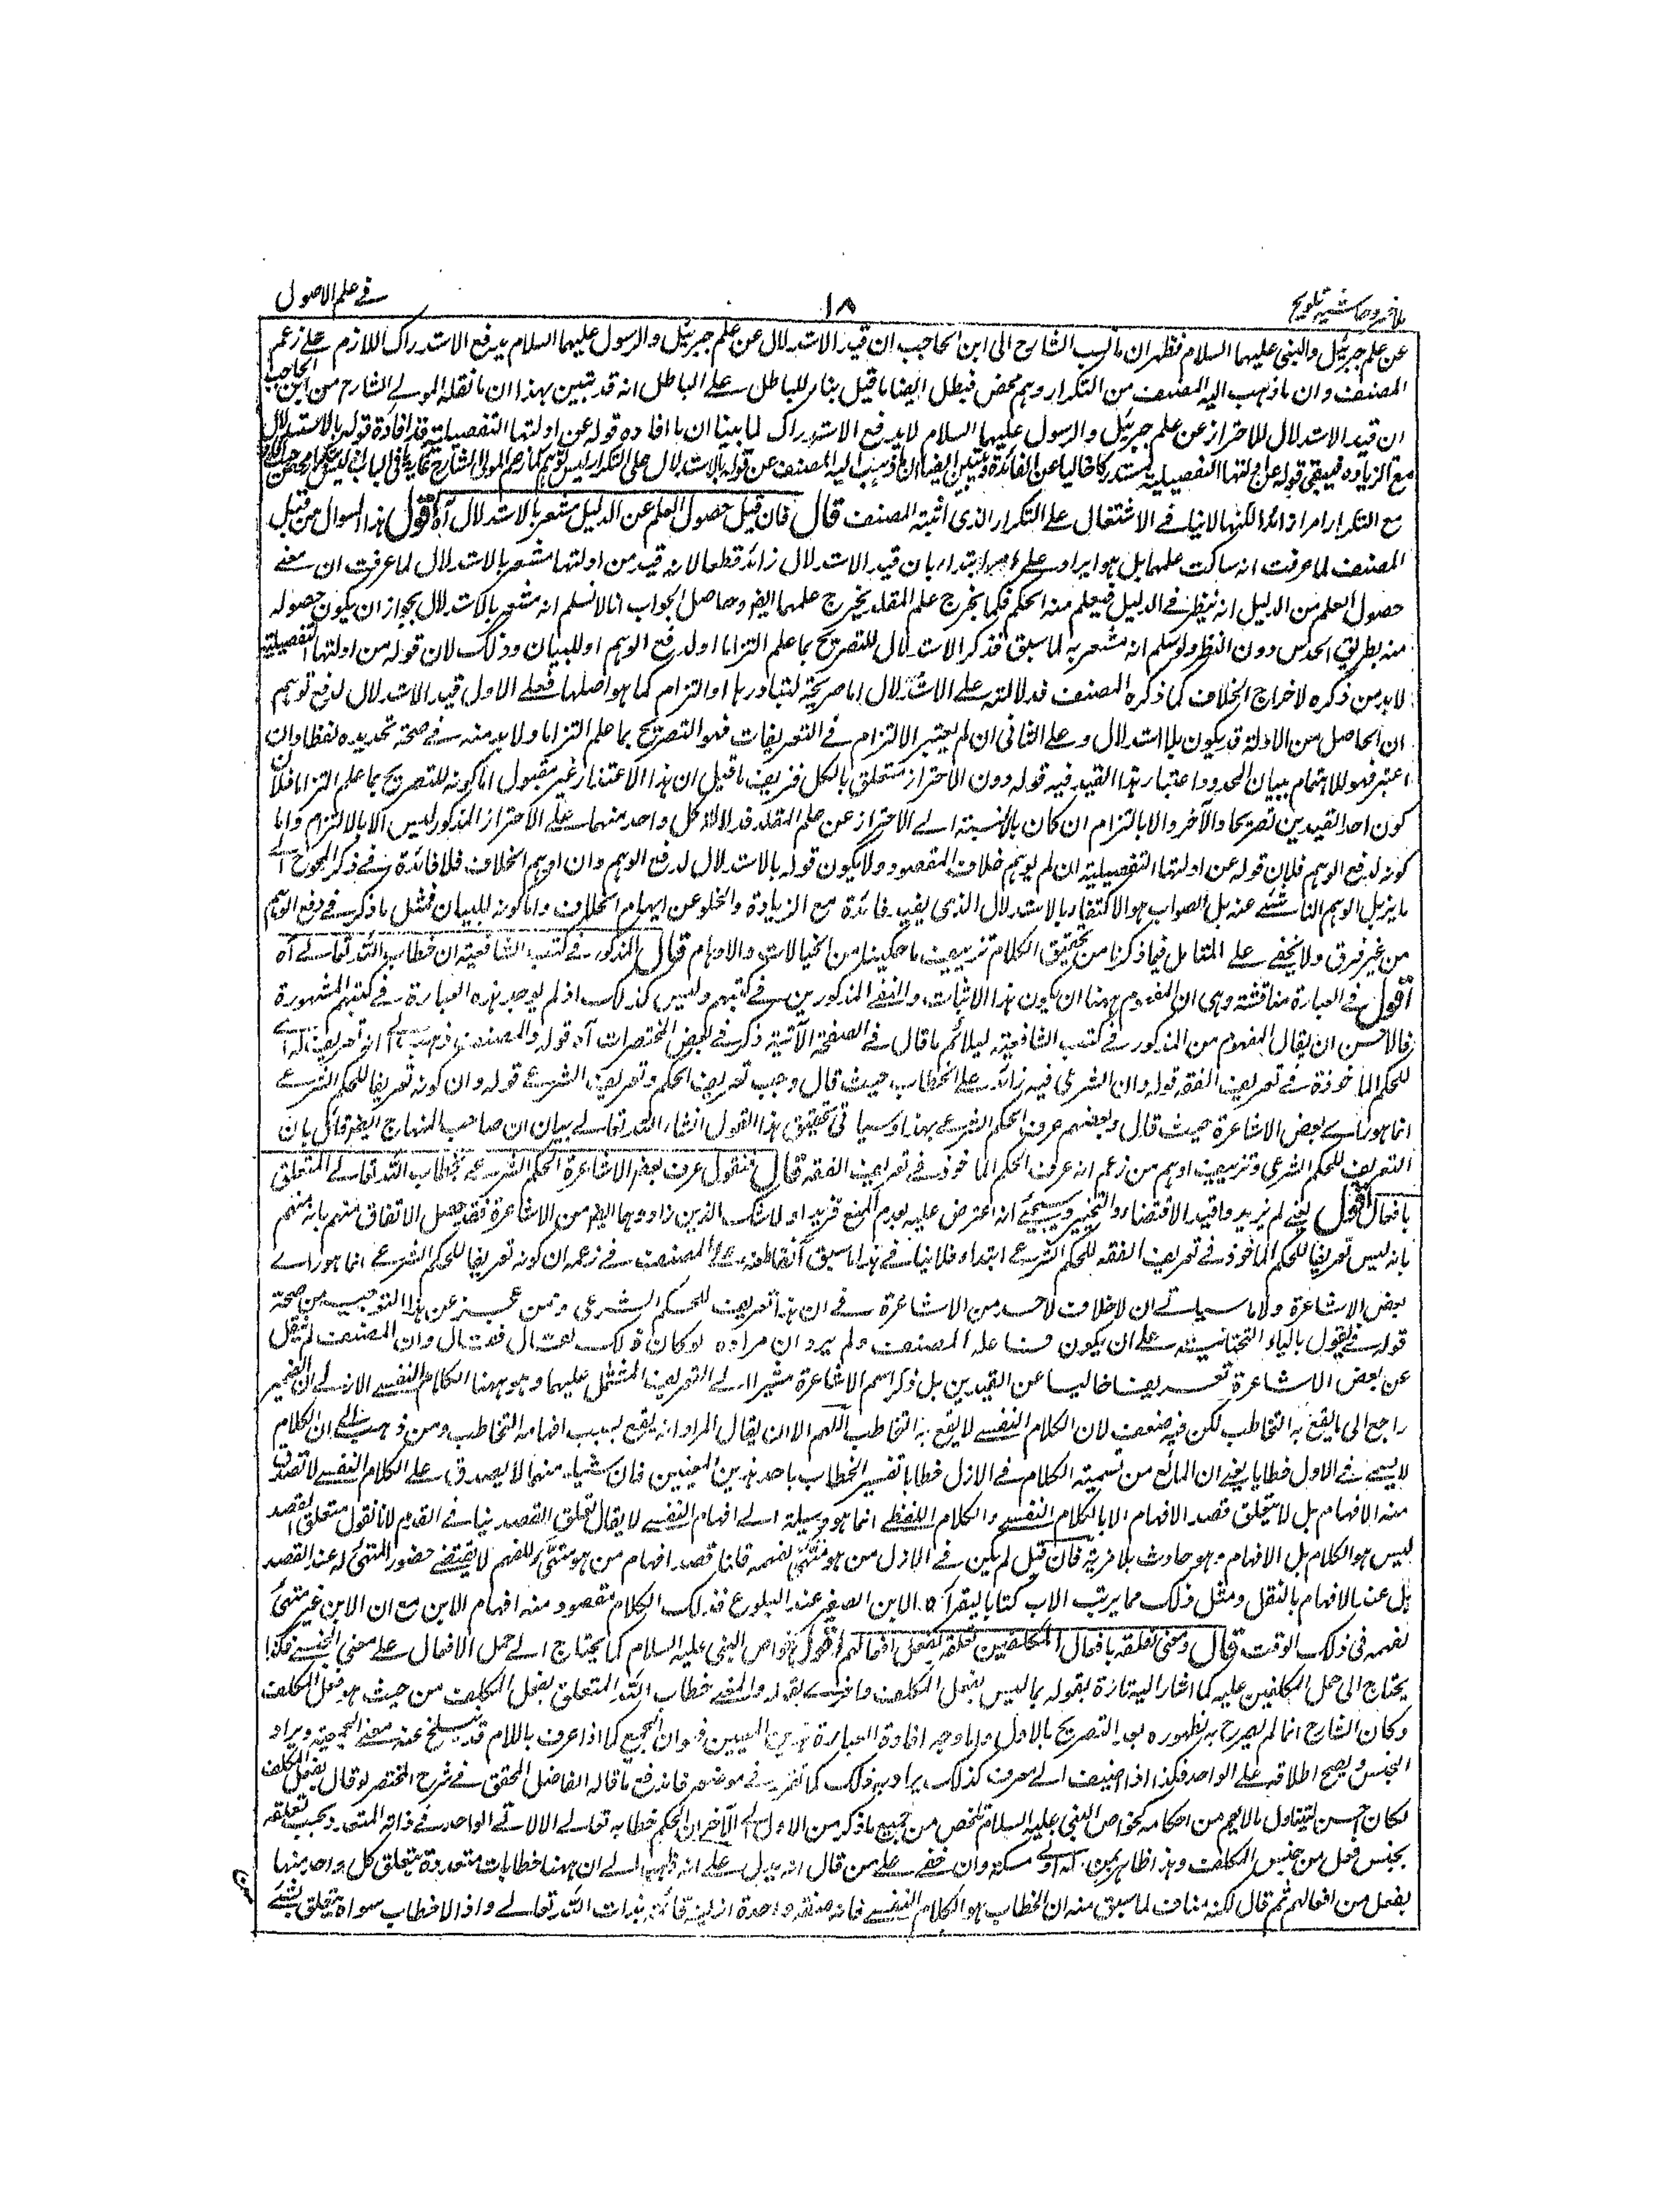 ملا خسرو حاشية تلويح
١٨
في علم الاصول
عن علم جبرئيل والنبي عليهما السلام فظهر ان ما نسب الشارح الى ابن الحاجب ان قيد الاستدلال عن علم جبرئيل والرسول عليهما السلام يدفع الاستدراك اللازم على زعم
المصنف وان ما ذهب اليه المصنف من التكرار وهم محض فبطل ايضا ما قيل بناء للباطل على الباطل انه قد تبين بهذا ان ما نقله المولى الشارح من ابن الحاجب
ان قيد الاستدلال للاحتراز عن علم جبرئيل والرسول عليهما السلام لا يدفع الاستدراك لما بينا ان ما افاده قوله عن ادلتها التفصيلية قد افاده قوله بالاستدلال
مع الزيادة فيبقى قوله عن ادلتها التفصيلية مستدركا خاليا عن الفائدة ويتبين ايضا ان ما ذهب اليه المصنف عن قوله بالاستدلال على التكرار ليس توهم كما زعم المولى الشارح غاية ما في الباب انه ليس تكرار محض
مع التكرار امر زائد لكنها لا ينافي الاشتغال على التكرار الذي اثبته المصنف قال فان قيل حصول العلم عن الدليل مشعر بالاستدلال آه اقول هذا السوال من قبل
المصنف لما عرفت انه ساكت علمهما بل هو ايراد على ابتداء بان قيد الاستدلال زائد قطعا لانه قيد من ادلتها مشعر بالاستدلال لما عرفت ان معنى
حصول العلم من الدليل انه ينظر في الدليل فيعلم منه الحكم فكما يخرج علم المقلد يخرج علمهما ايضا وحاصل الجواب انا لا نسلم انه مشعر بالاستدلال بجواز ان يكون حصوله
منه بطريق الحدس دون النظر ولو سلم انه مشعر به لما سبق فذكر الاستدلال للتصريح بما علم التزاما او لدفع الوهم او للبيان وذلك لان قوله من ادلتها التفصيلية
لا بد من ذكره لاخراج الخلاف كما ذكره المصنف فدلالته على الاستدلال اما صريحة لتبادرها او التزام كما هو اصلها فعلى الاول قيد الاستدلال لدفع توهم
ان الحاصل من الادلة قد يكون بلا استدلال وعلى الثاني ان لم يعتبر الالتزام في التعريفات فهو التصريح بما علم التزاما ولا بد منه في صحة تحديده لفظا وان
اعتبر فهو للاهتمام ببيان الحدود واعتبار هذا القيد فيه قوله دون الاحتراز متعلق بالكل فزيف ما قيل ان هذا الاعتذار غير مقبول اما كونه للتصريح بما علم التزاما فلان
كون احد القيدين تصريحا والآخر والا بالتزام ان كان بالنسبة الى الاحتراز عن علم المقلد فدلالة كل واحد منهما على الاحتراز المذكور ليس الا بالالتزام واما
كونه لدفع الوهم فلان قوله عن ادلتها التفصيلية ان لم يوهم خلاف المقصود ولا يكون قوله بالاستدلال لدفع الوهم وان اوهم الخلاف فلا فائدة في ذكر المحوج الى
ما يزيل الوهم الناشئ عنه بل الصواب هو الاكتفاء بالاستدلال الذي يفيد فائدة مع الزيادة والخلو عن ايهام الخلاف واما كونه للبيان فمثل ما ذكر في دفع الوهم
من غير فرق ولا يخفى على المتامل فيما ذكرنا من تحقيق الكلام تزييف ما حكينا من الخيالات والاوهام قال المذكور في كتب الشافعية ان خطاب الله تعالى آه
اقول في العبارة مناقشة وهي ان المفهوم ههنا ان يكون هذا الاثبات والنفي المذكورين في كتبهم وليس كذلك اذ لم يوجد هذه العبارة في كتبهم المشهورة
فالاحسن ان يقال المفهوم من المذكور في كتب الشافعية ليلائم ما قال في الصفحة الآتية ذكر في بعض المختصرات آه قوله والمصنف ذهب الى انه تعريف له اي
للحكم الماخوذة في تعريف الفقه قوله وان الشرعي فيه زائد على الخطاب حيث قال وجب تعريف الحكم وتعريف الشرعي قوله وان كونه تعريفا للحكم الشرعي
انما هو راي بعض الاشاعرة حيث قال وبعضهم عرف الحكم الشرعي بهذا وسياتي تحقيق هذا القول انشاء الله تعالى ببيان ان صاحب المنهاج ايضا قائل بان
التعريف للحكم الشرعي وتزييف اوهم من زعم انه عرف الحكم الماخوذ في تعريف الفقه قال فنقول عرف بعض الاشاعرة الحكم الشرعي بخطاب الله تعالى المتعلق
بافعال اقول يعني لم يزيد واقيد الاقتضاء والتخيير وسيجئ انه اعترض عليه بعدم المنع فزيد او لا شك الذين زادوهما ايضا من الاشاعرة فقد حصل الاتفاق منهم بانه منهم
بانه ليس تعريفا للحكم الماخوذ في تعريف الفقه للحكم الشرعي ابتداء فلا ينافي هذا ما سبق آنفا طعنه على المصنف في زعمه ان كونه تعريفا للحكم الشرعي انما هو راي
بعض الاشاعرة ولا ما سياتي ان لا خلاف لاحد من الاشاعرة في ان هذا تعريف للحكم الشرعي ومن عجز عن هذا التوجيه من صحة
قوله فيقول بالياء التحتانية على ان يكون فاعله المصنف ولم يرد ان مراده لو كان ذلك لقال فقال وان المصنف لم ينقل
عن بعض الاشاعرة تعريفا خاليا عن القيدين بل ذكر اسم الاشاعرة مشيرا الى التعريف المشتمل عليهما وهو ههنا الكلام النفسي الازلي ان الضمير
راجع الى ما يقع به التخاطب لكن فيه ضعف لان الكلام النفسي لا يقع به التخاطب اللهم الا ان يقال المراد انه يقع بسبب افهامه التخاطب ومن ذهب الى ان الكلام
لا يسمى في الاول خطابا يعني ان المانع من تسمية الكلام في الازل خطابا تفسير الخطاب باحد هذين المعنيين فان شياء منهما لا يصدق على الكلام النفسي لا تصدق
منه الافهام بل لا يتعلق قصد الافهام الا بالكلام النفسي والكلام اللفظي انما هو وسيلة الى افهام النفسي لا يقال تعلق القصد ينافي القدم لانا نقول متعلق القصد
ليس هو الكلام بل الافهام وهو حادث بلا مرية فان قيل لم يكن في الازل من هو متهئ لفهمه قلنا قصد افهام من هو متهئ للفهم لا يقتضي حضور المتهئ له عند القصد
بل عند الافهام بالنقل ومثل ذلك مما يرتب الاب كتابا ليقرأه الابن الصغير عند البلوغ فذلك الكلام مقصود منه افهام الابن مع ان الابن غير متهئ
لفهمه في ذلك الوقت قال ومعنى تعلقه بافعال المكلفين تعلقه بفعل من افعالهم اقول خواص النبي عليه السلام كما يحتاج الى حمل الافعال على معنى الجنس فكذا
يحتاج الى حمل المكلفين عليه كما اشار اليه تارة بقوله بما ليس بفعل المكلف واخرى بقوله والمعنى خطاب الله المتعلق بفعل المكلف من حيث هو فعل المكلف
وكان الشارح انما لم يصرح به لظهوره بعد التصريح بالاول واما وجه افادة العبارة هذين المعنيين فهو ان الجمع كما اذا عرف باللام قد ينسلخ عنه معنى الجمعية ويراد
الجنس ويصح اطلاقه على الواحد فكذا اذا اضيف الى معرف كذلك يراد به ذلك كما تقرر في موضعه فاندفع ما قاله الفاضل المحقق في شرح المختصر لو قال بفعل المكلف
لكان احسن ليتناول ما لا يعم من احكامه كخواص النبي عليه السلام تلخص من جميع ما ذكر من الاول الى الآخر ان الحكم خطابه تعالى الازلي الواحد في ذاته المتعدد بحسب تعلقه
بجنس فعل من جنس المكلف وهذا ظاهر لمن له ادنى مسكة وان خفي على من قال انه يدل على انه ذهب الى ان ههنا خطابات متعددة يتعلق كل واحد منها
بفعل من افعالهم ثم قال لكنه مناف لما سبق منه ان الخطاب هو الكلام النفسي فانه صفة واحدة ازلية قائمة بذات الله تعالى واذ الاخطاب سواه يتعلق بشئ